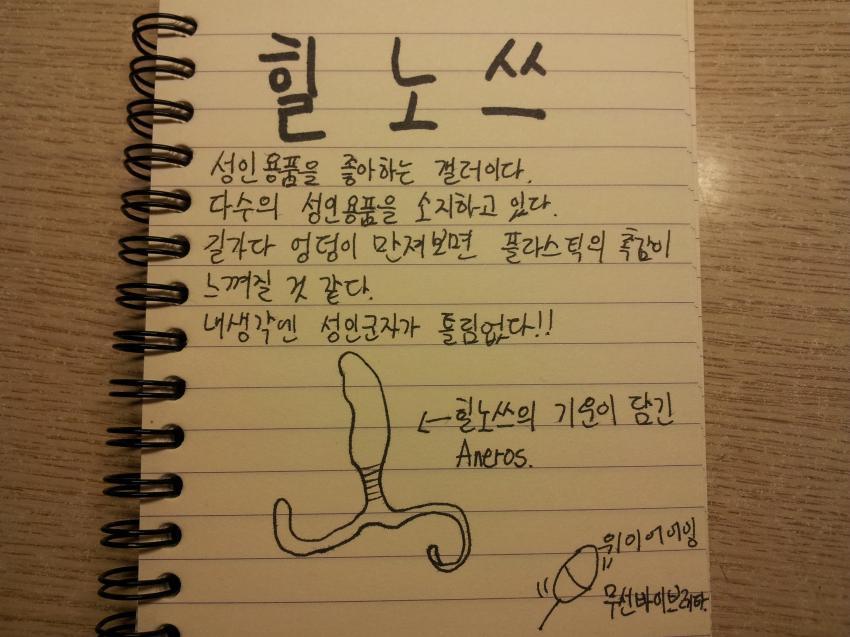 힐노쓰
성인용품을 좋아하는 갤러이다.
다수의 성인용품을 소지하고 있다.
길가다 엉덩이 만져보면 플라스틱의 촉감이
느껴질 것 같다.
내생각엔 성인군자가 틀림없다!!
←힐노쓰의 기운이 담긴
Aneros.
위이어어잉
무선바이브레타.